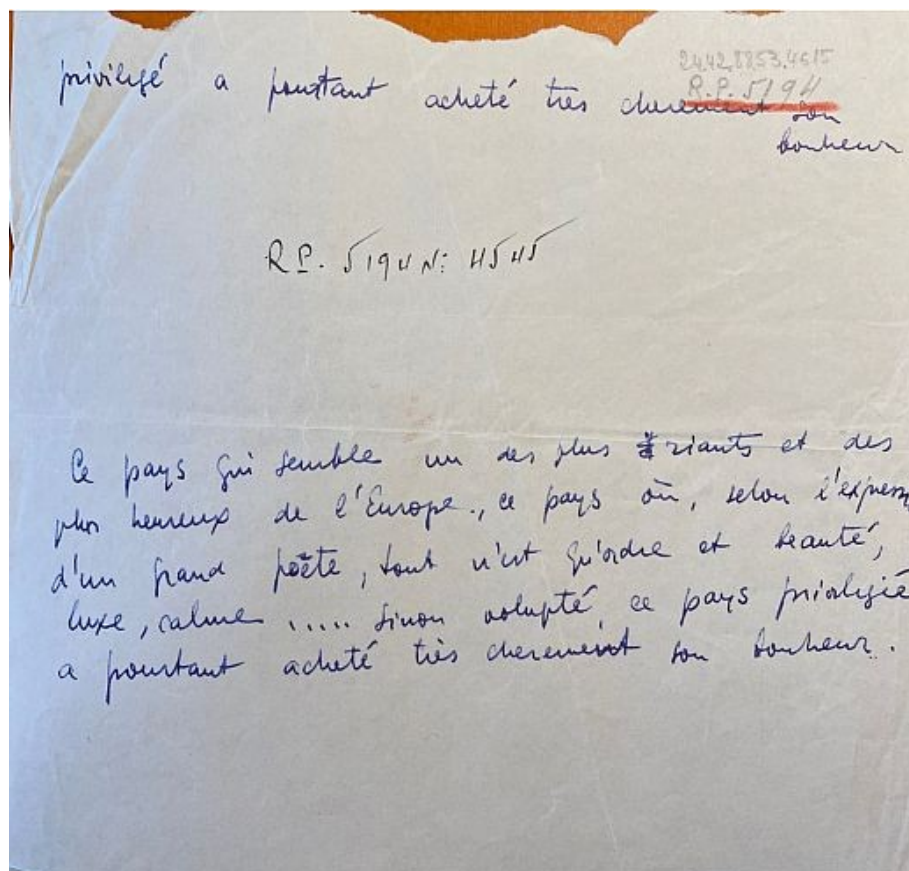 privilegé a pourtant acheté très cherement son
bonheur
R.P. 5194
R.P. 5194 N: 4545
Ce pays qui semble un des plus riants et des
plus heureux de l'Europe., ce pays où, selon l'express
d'un grand poète, tout n'est qu'ordre et beauté,
luxe, calme ..... sinon volupté ce pays privilegié
a pourtant acheté très cherement son bonheur.